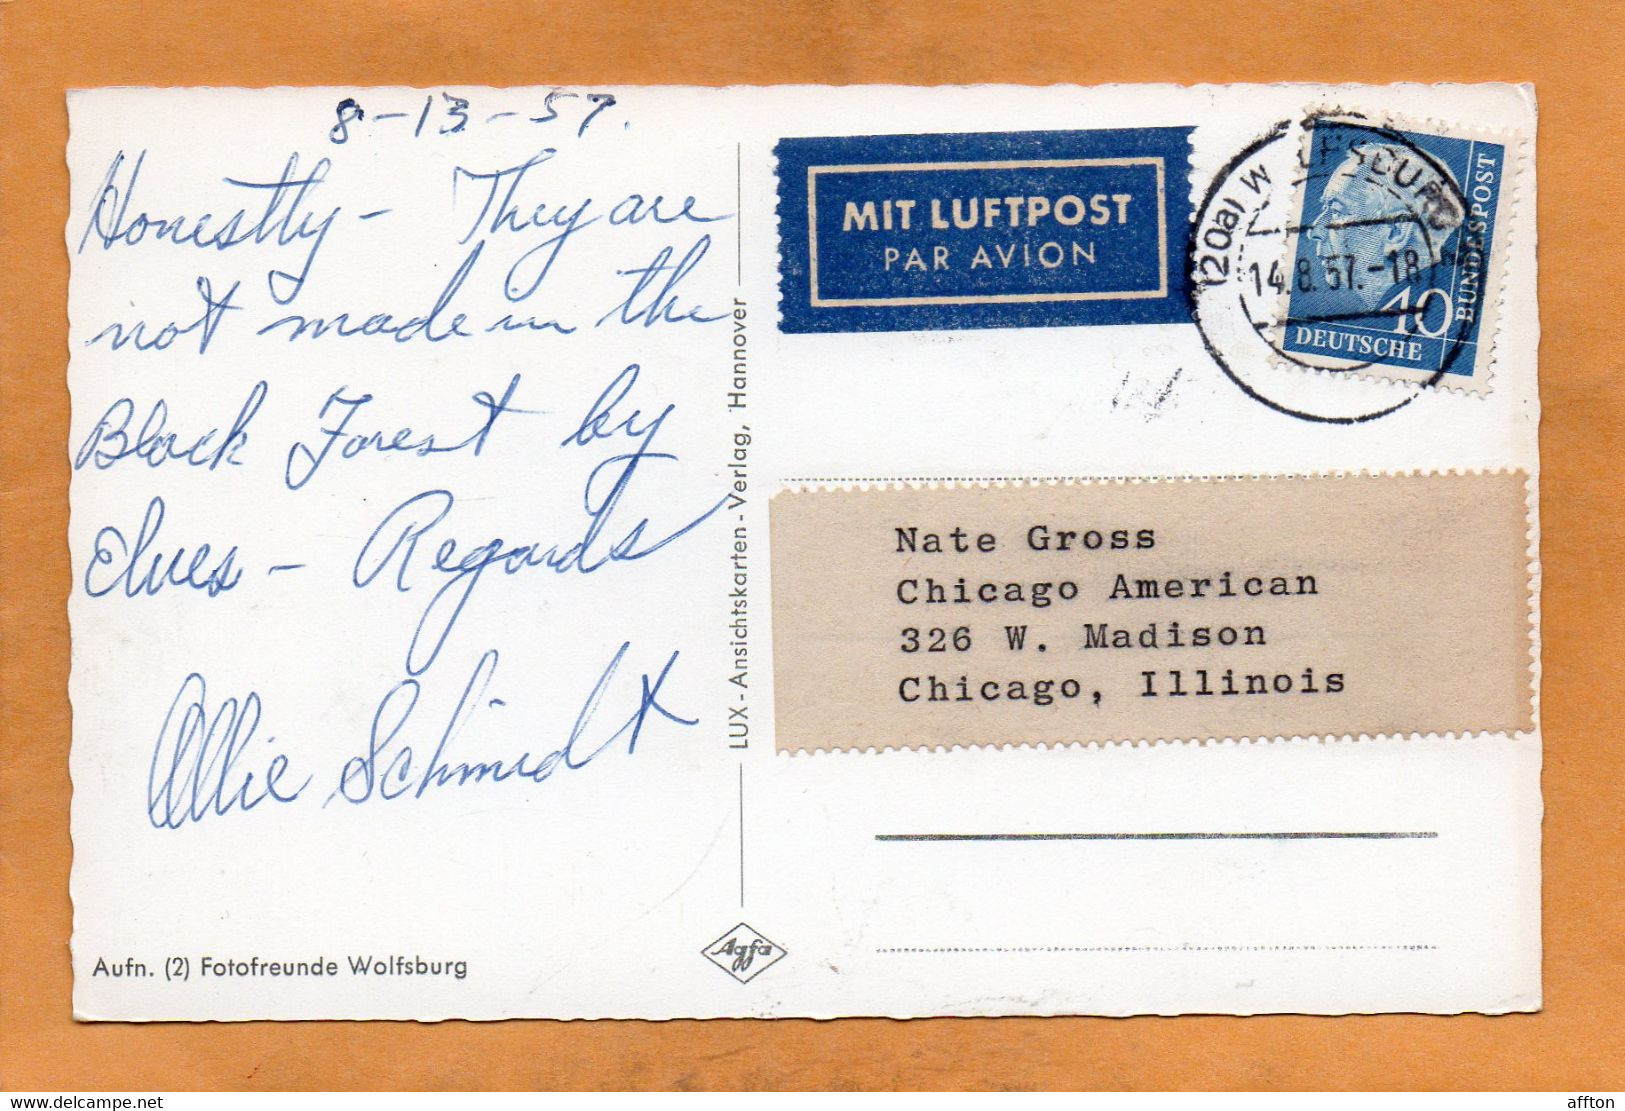 8-13-57.
Honestly - They are
not made in the
Black Forest by
Elves - Regards
Ollie Schmidt
Aufn. (2) Fotofreunde Wolfsburg
LUX - Ansichtskarten - Verlag, Hannover
Agfa
MIT LUFTPOST
PAR AVION
(20a) WOLFSBURG
14.8.57.-18
40
DEUTSCHE
BUNDESPOST
Nate Gross
Chicago American
326 W. Madison
Chicago, Illinois
delcampe.net
affton